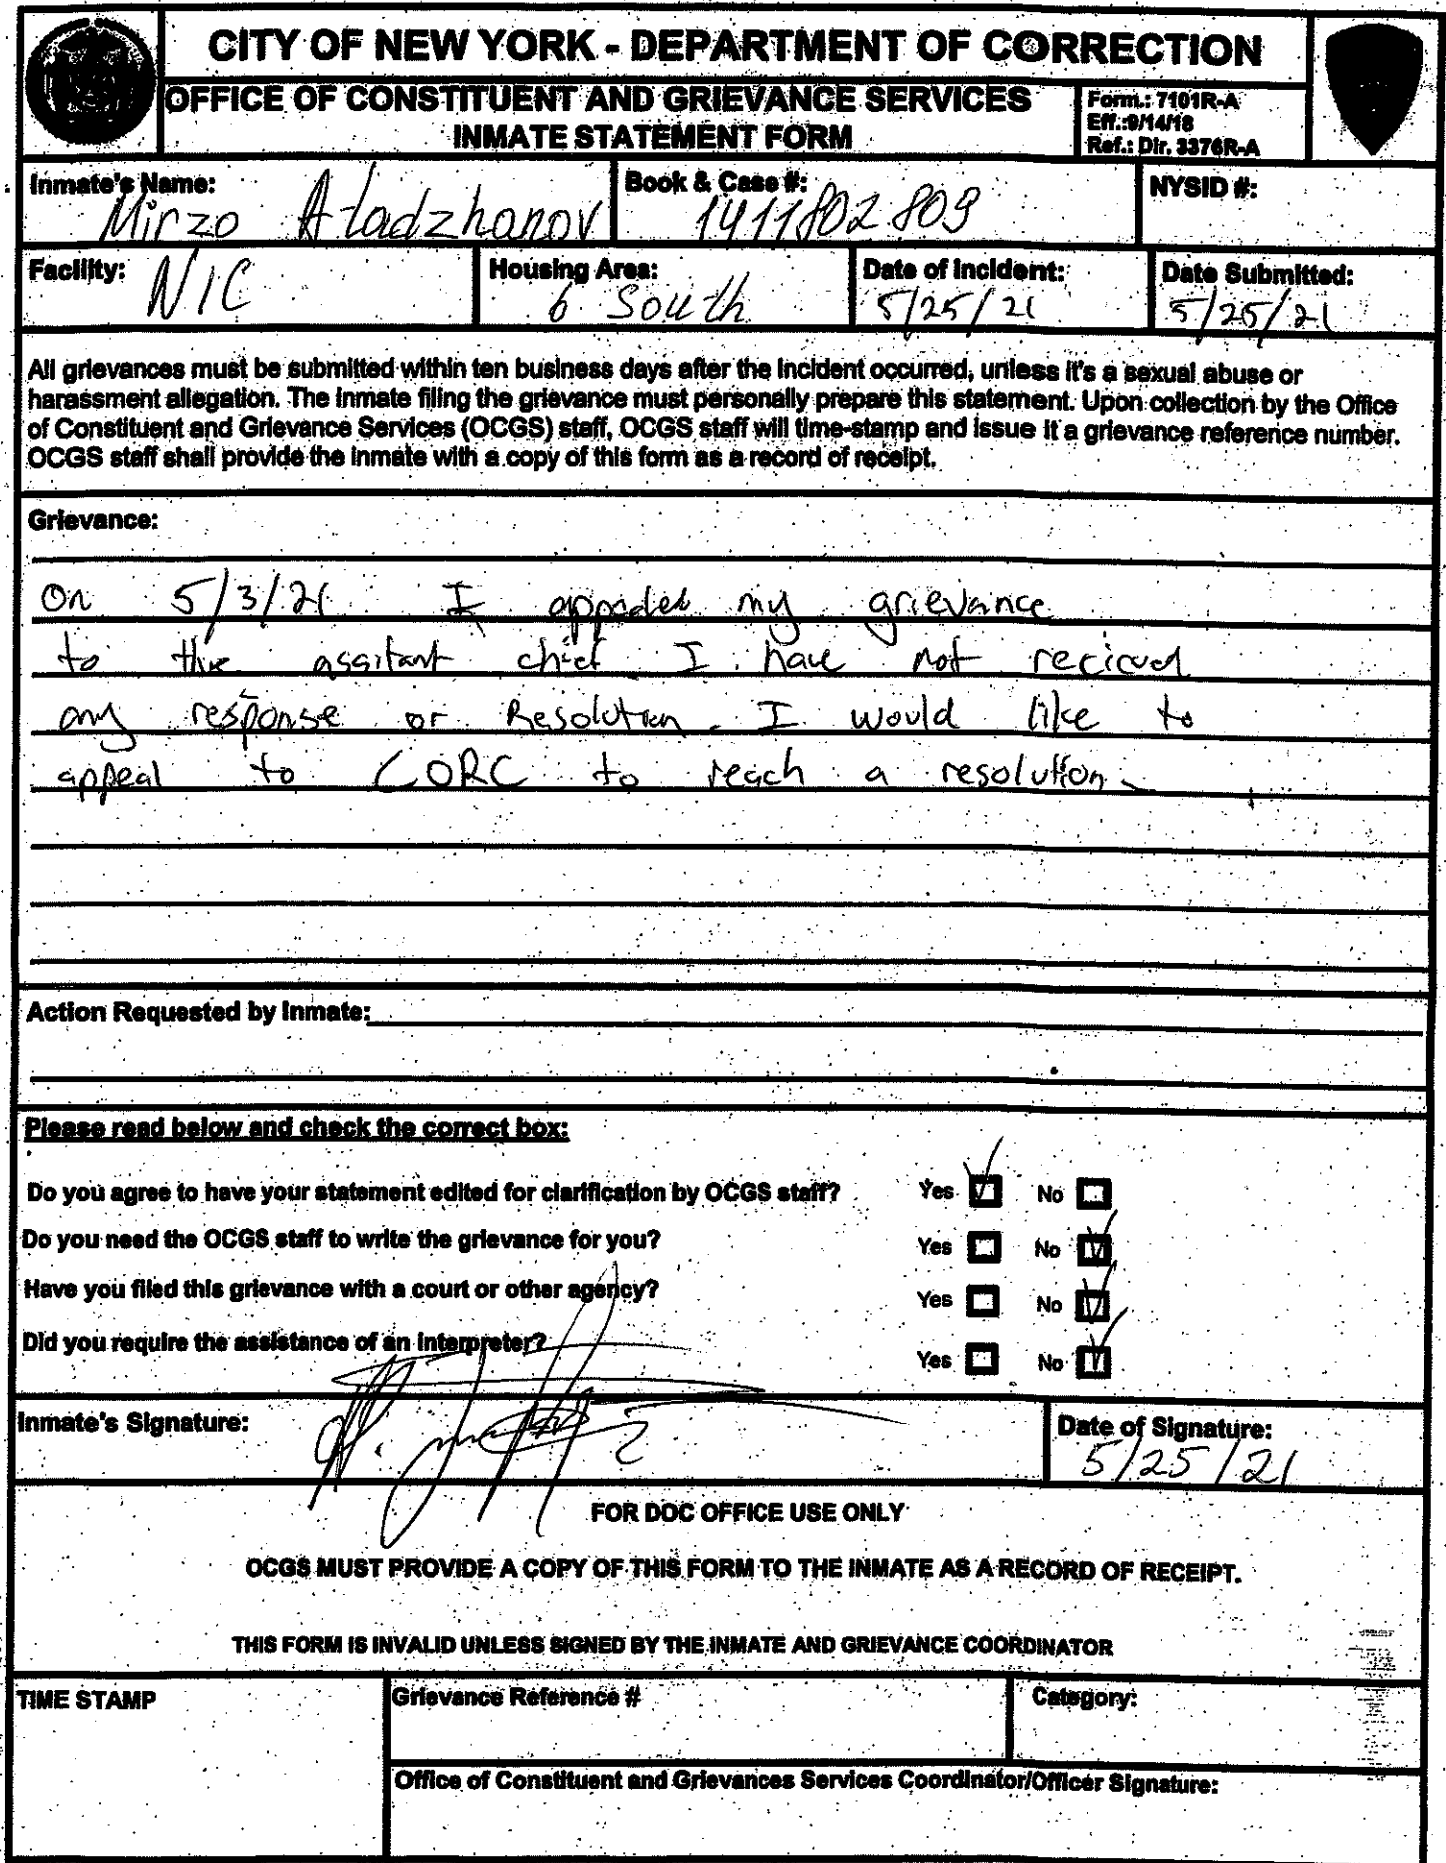 CITY OF NEW YORK - DEPARTMENT OF CORRECTION
OFFICE OF CONSTITUENT AND GRIEVANCE SERVICES
INMATE STATEMENT FORM
Form.: 7101R-A
Eff.:9/14/18
Ref.: Dir. 3376R-A
Inmate's Name: Mirzo Atadzhanov
Book & Case #: 1411802809
NYSID #:
Facility: NIC
Housing Area: 6 South
Date of Incident: 5/25/21
Date Submitted: 5/25/21
All grievances must be submitted within ten business days after the incident occurred, unless it's a sexual abuse or
harassment allegation. The inmate filing the grievance must personally prepare this statement. Upon collection by the Office
of Constituent and Grievance Services (OCGS) staff, OCGS staff will time-stamp and issue it a grievance reference number.
OCGS staff shall provide the inmate with a copy of this form as a record of receipt.
Grievance:
On 5/3/21 I appealed my grievance
to the assitant chief I have not recieved
any response or Resolution. I would like to
appeal to CORC to reach a resolution.
Action Requested by Inmate:
Please read below and check the correct box:
Do you agree to have your statement edited for clarification by OCGS staff? Yes No
Do you need the OCGS staff to write the grievance for you? Yes No
Have you filed this grievance with a court or other agency? Yes No
Did you require the assistance of an interpreter? Yes No
Inmate's Signature:
Date of Signature: 5/25/21
FOR DOC OFFICE USE ONLY
OCGS MUST PROVIDE A COPY OF THIS FORM TO THE INMATE AS A RECORD OF RECEIPT.
THIS FORM IS INVALID UNLESS SIGNED BY THE INMATE AND GRIEVANCE COORDINATOR
TIME STAMP
Grievance Reference #
Category:
Office of Constituent and Grievances Services Coordinator/Officer Signature: